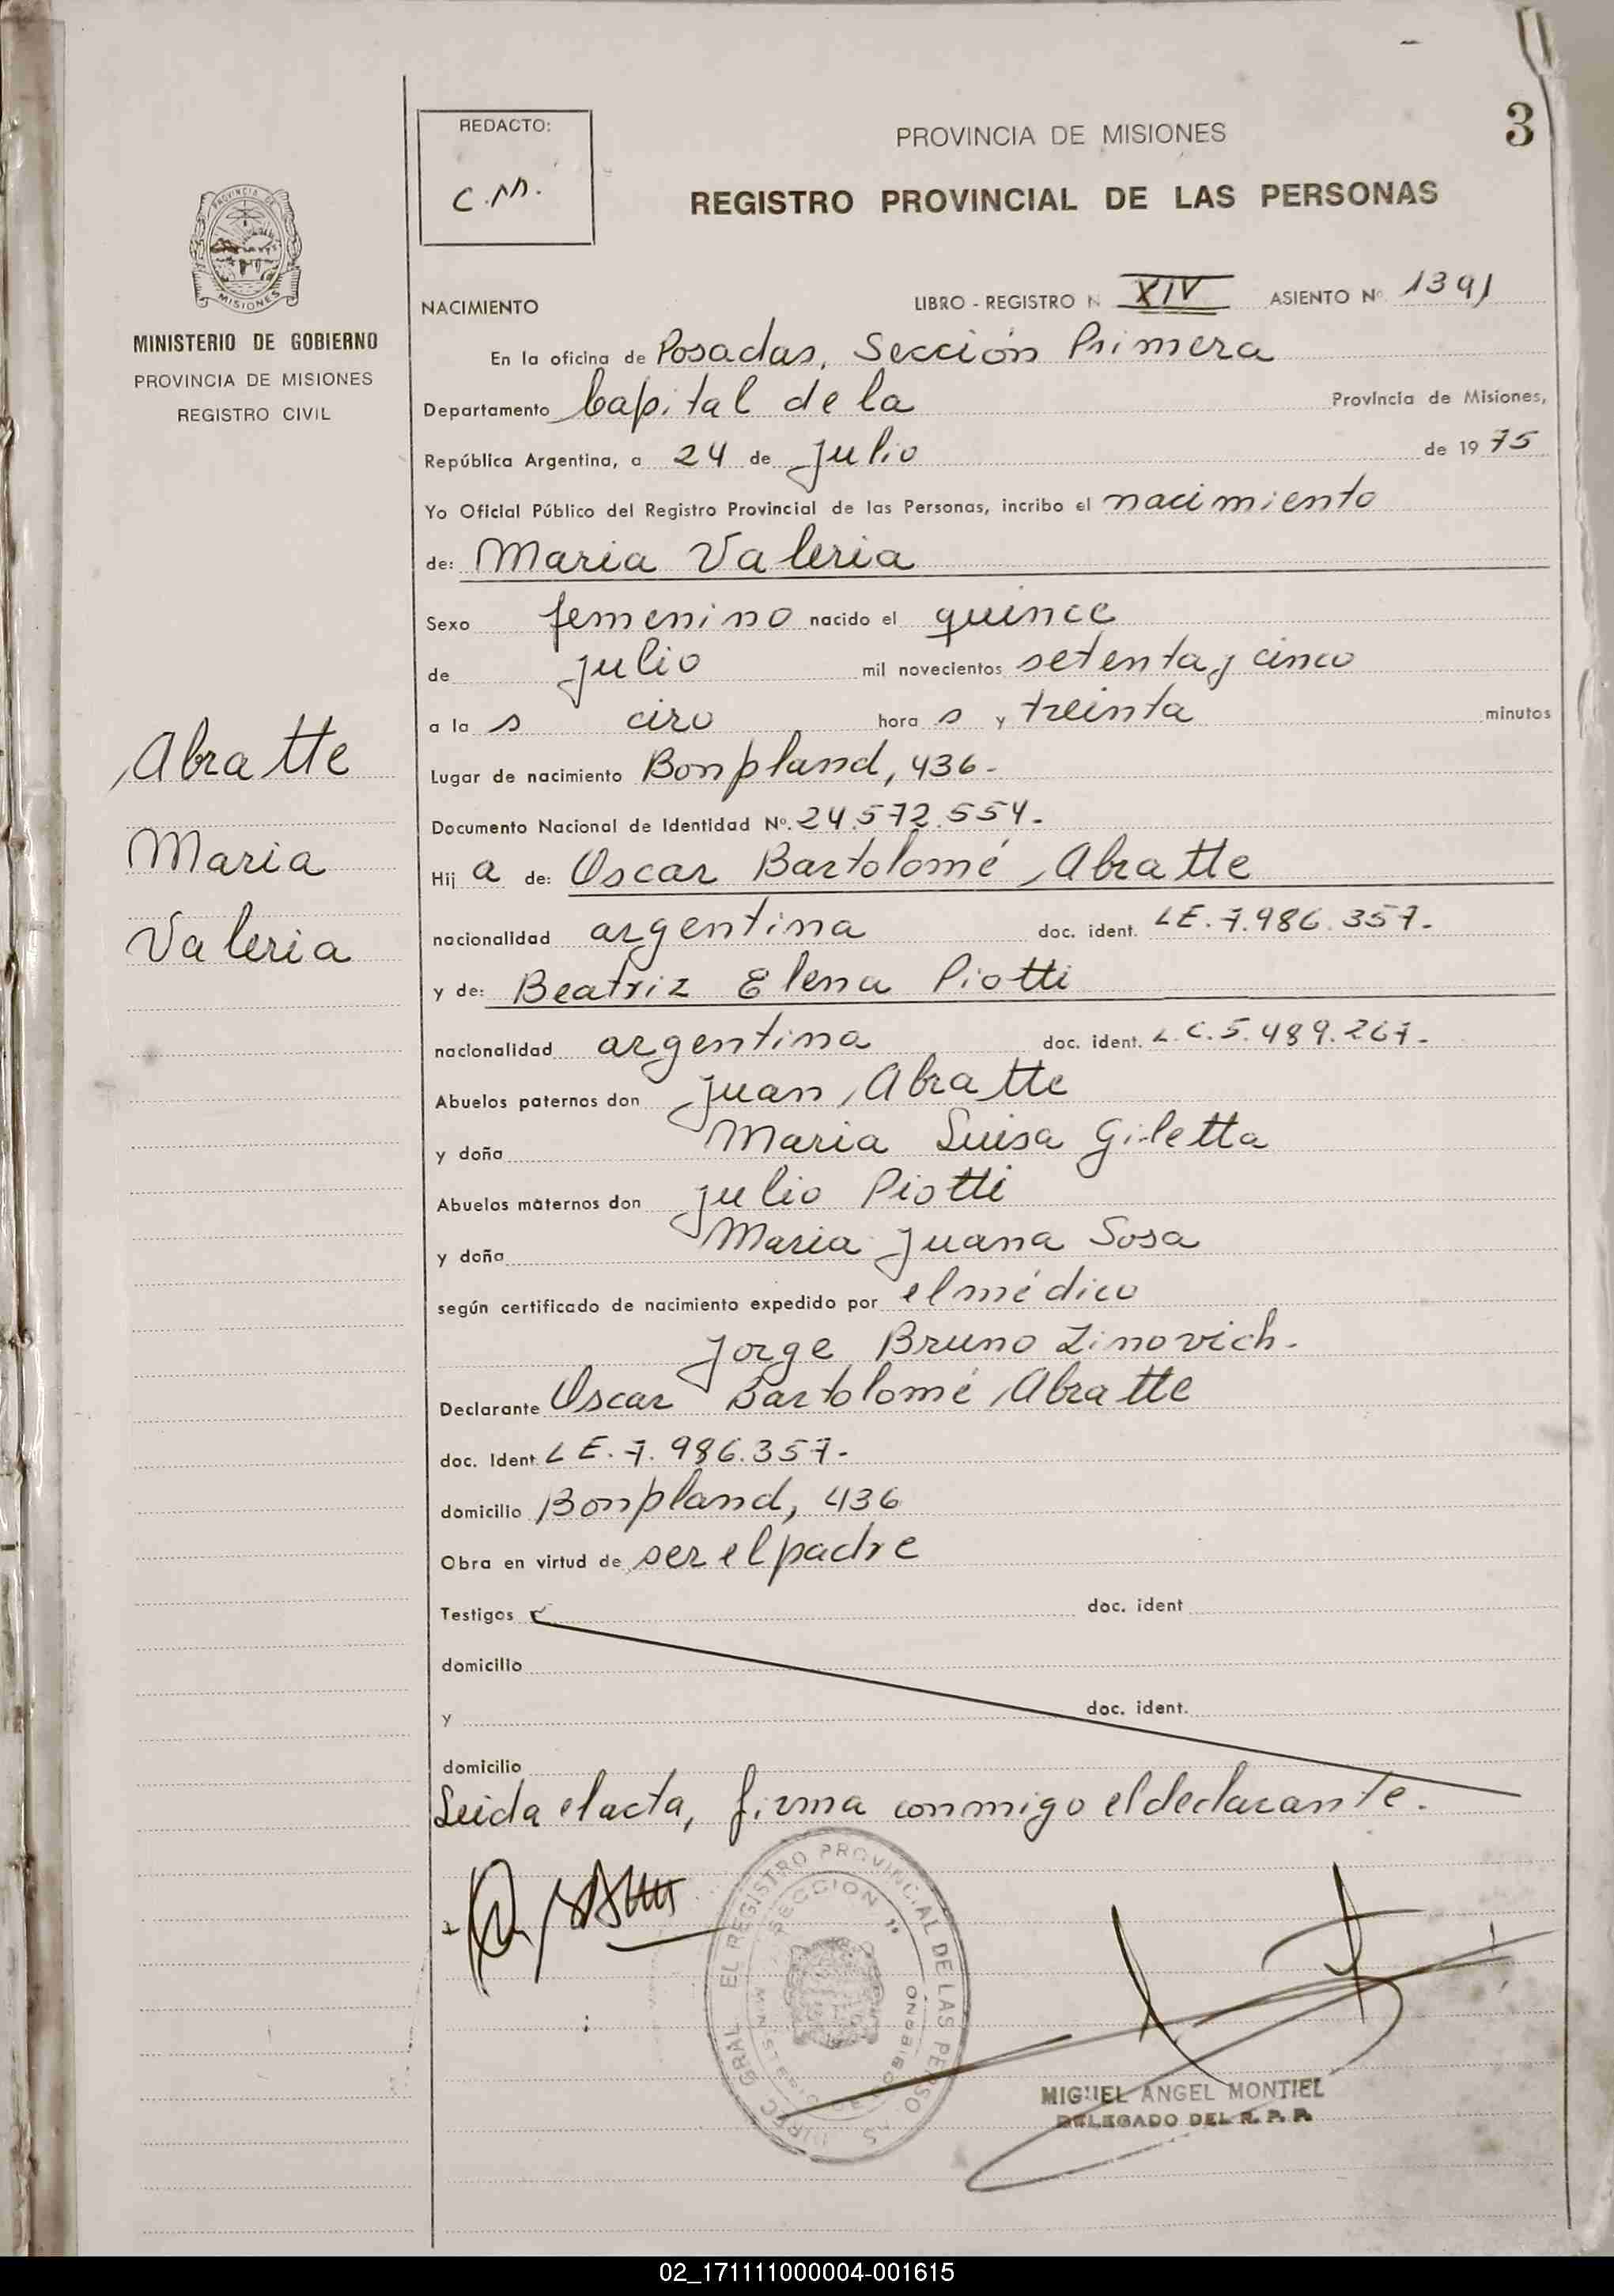 3
REDACTO:
C.M.
PROVINCIA DE MISIONES
REGISTRO PROVINCIAL DE LAS PERSONAS
PROVINCIA DE
MISIONES
MINISTERIO DE GOBIERNO
PROVINCIA DE MISIONES
REGISTRO CIVIL
NACIMIENTO LIBRO - REGISTRO N XIV ASIENTO Nº 1391
En la oficina de Posadas, Sección Primera
Departamento Capital de la Provincia de Misiones,
República Argentina, a 24 de Julio de 1975
Yo Oficial Público del Registro Provincial de las Personas, incribo el nacimiento
de: Maria Valeria
Sexo femenino nacido el quince
de julio mil novecientos setenta y cinco
a la s ciro hora s y treinta minutos
Abratte
Maria
Valeria
Lugar de nacimiento Bonpland, 436-
Documento Nacional de Identidad Nº. 24.572.554.
Hij a de: Oscar Bartolomé Abratte
nacionalidad argentina doc. ident. LE. 7.986.357.
y de: Beatriz Elena Piotti
nacionalidad argentina doc. ident. L.C. 5.489.267.
Abuelos paternos don Juan Abratte
y doña Maria Luisa Giletta
Abuelos maternos don Julio Piotti
y doña Maria Juana Sosa
según certificado de nacimiento expedido por el médico
Jorge Bruno Zinovich.
Declarante Oscar Bartolomé Abratte
doc. Ident. LE. 7.986.357.
domicilio Bonpland, 436
Obra en virtud de ser el padre
Testigos doc. ident
domicilio
y doc. ident.
domicilio
Leida el acta, firma conmigo el declarante.
DIREC. GRAL. EL REGISTRO PROVINCIAL DE LAS PERSO AS
SECCION 1ª
MIGUEL ANGEL MONTIEL
DELEGADO DEL R. P. P.
02_171111000004-001615